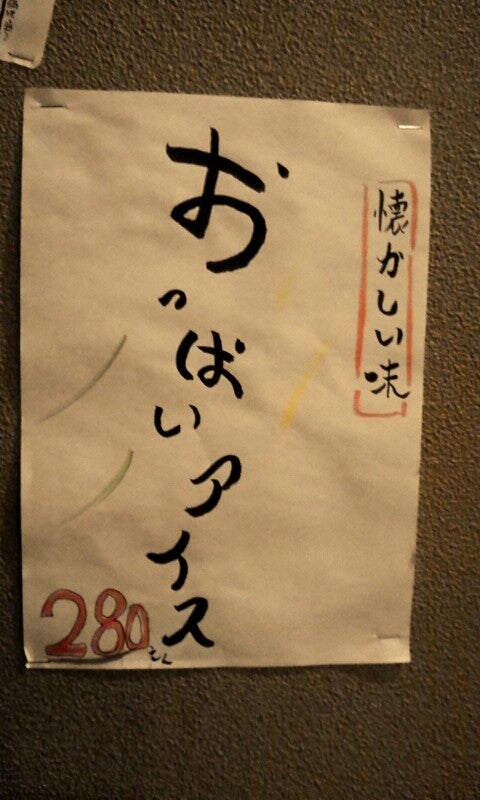 懐かしい味
おっぱいアイス
280